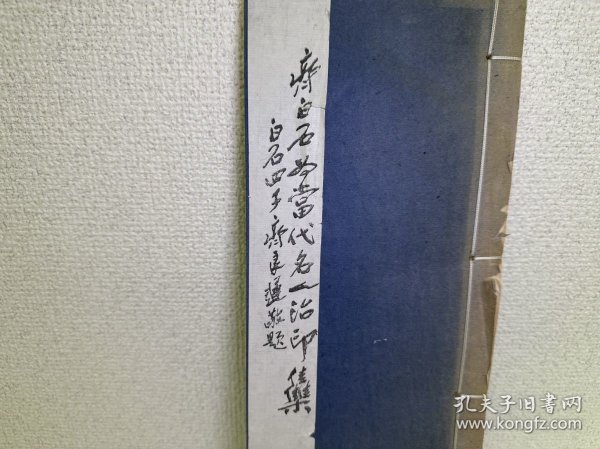 齊白石為當代名人治印集
白石四子齊良遲敬題
孔夫子旧书网
www.kongfz.com